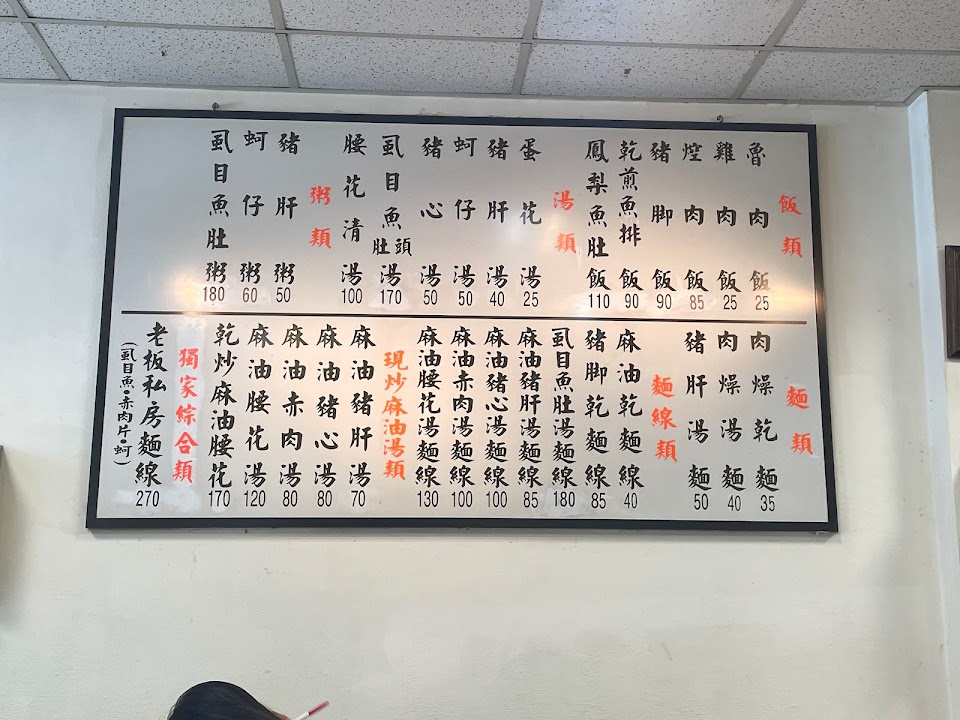 飯類
魯肉飯25
雞肉飯25
焢肉飯85
豬脚飯90
乾煎魚排飯90
鳳梨魚肚飯110
湯類
蛋花湯25
豬肝湯40
蚵仔湯50
豬心湯50
虱目魚頭肚湯170
腰花清湯100
粥類
豬肝粥50
蚵仔粥60
虱目魚肚粥180
麵類
肉燥乾麵35
肉燥湯麵40
豬肝湯麵50
麵線類
麻油乾麵線40
豬脚乾麵線85
虱目魚肚湯麵線180
麻油豬肝湯麵線85
麻油豬心湯麵線100
麻油赤肉湯麵線100
麻油腰花湯麵線130
現炒麻油湯類
麻油豬肝湯70
麻油豬心湯80
麻油赤肉湯80
麻油腰花湯120
乾炒麻油腰花170
獨家綜合類
老板私房麵線270
(虱目魚•赤肉片•蚵)